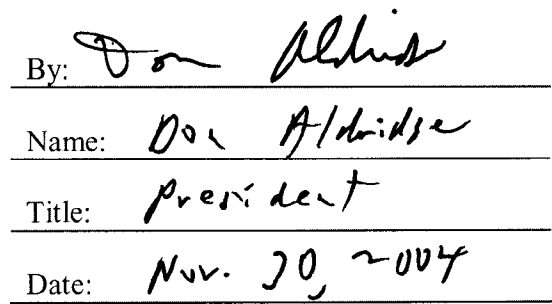 By: Don Aldridge
Name: Don Aldridge
Title: President
Date: Nov. 30, 2004